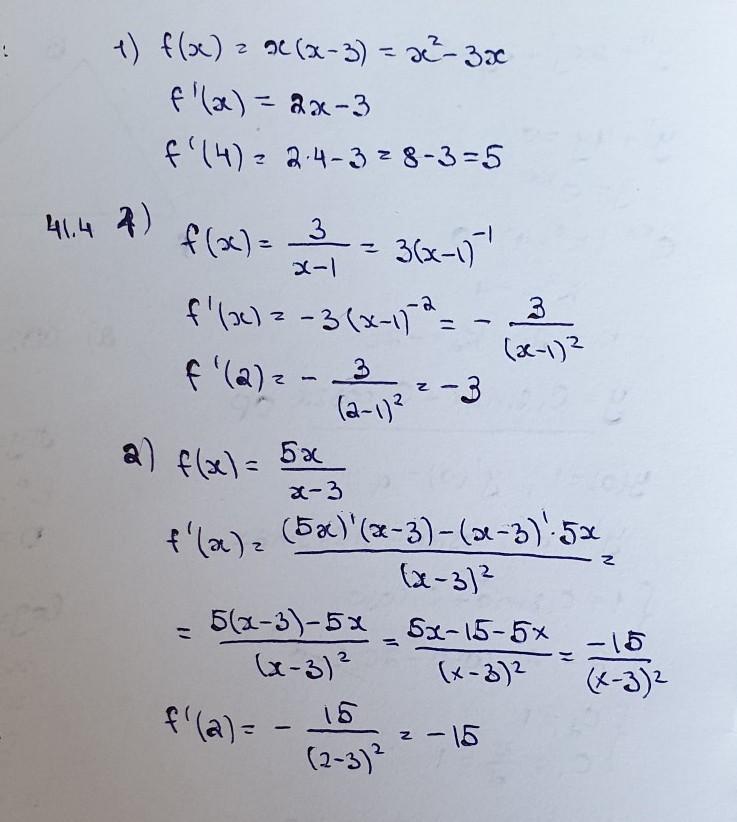 1) f(x) = x(x-3) = x² - 3x
f'(x) = 2x-3
f'(4) = 2·4-3 = 8-3=5
41.4 1) f(x) = 3/(x-1) = 3(x-1)⁻¹
f'(x) = -3(x-1)⁻² = - 3/(x-1)²
f'(2) = - 3/(2-1)² = -3
2) f(x) = 5x/(x-3)
f'(x) = ((5x)'(x-3)-(x-3)'·5x)/(x-3)² =
= (5(x-3)-5x)/(x-3)² = (5x-15-5x)/(x-3)² = -15/(x-3)²
f'(2) = - 15/(2-3)² = -15